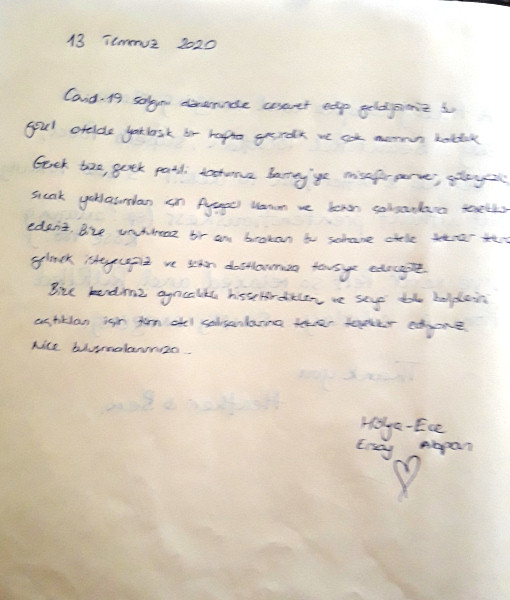 13 Temmuz 2020
Covid-19 salgını döneminde cesaret edip geldiğimiz bu
güzel otelde yaklaşık bir hafta geçirdik ve çok memnun kaldık.
Gerek bize, gerek patili dostumuz Barney'ye misafirperver, güleryüzlü,
sıcak yaklaşımları için Ayşegül Hanım ve bütün çalışanlara teşekkür
ederiz. Bize unutulmaz bir anı bırakan bu şahane otele tekrar
gelmek isteyeceğiz ve bütün dostlarımıza tavsiye edeceğiz.
Bize kendimizi ayrıcalıklı hissettirdikleri ve sevgi dolu kalplerini
açtıkları için tüm otel çalışanlarına tekrar teşekkür ediyoruz.
Nice buluşmalarımıza...
Hülya-Ece
Ersoy Alapan
Thank you
Heather & Ben